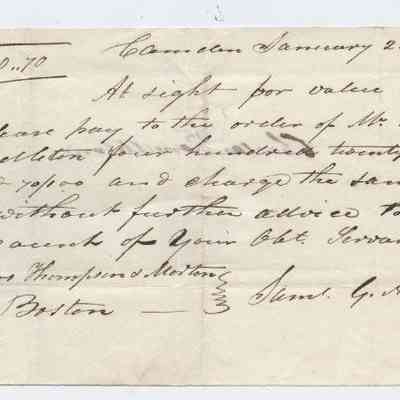 0..70
Camden January 2
At sight for value
lease pay to the order of Mr.
dleton four hundred twenty
& 70/100 and charge the sam
without further advice to
acount of Your Obt. Servan
Thompson & Morton
Boston —
Saml. G. A